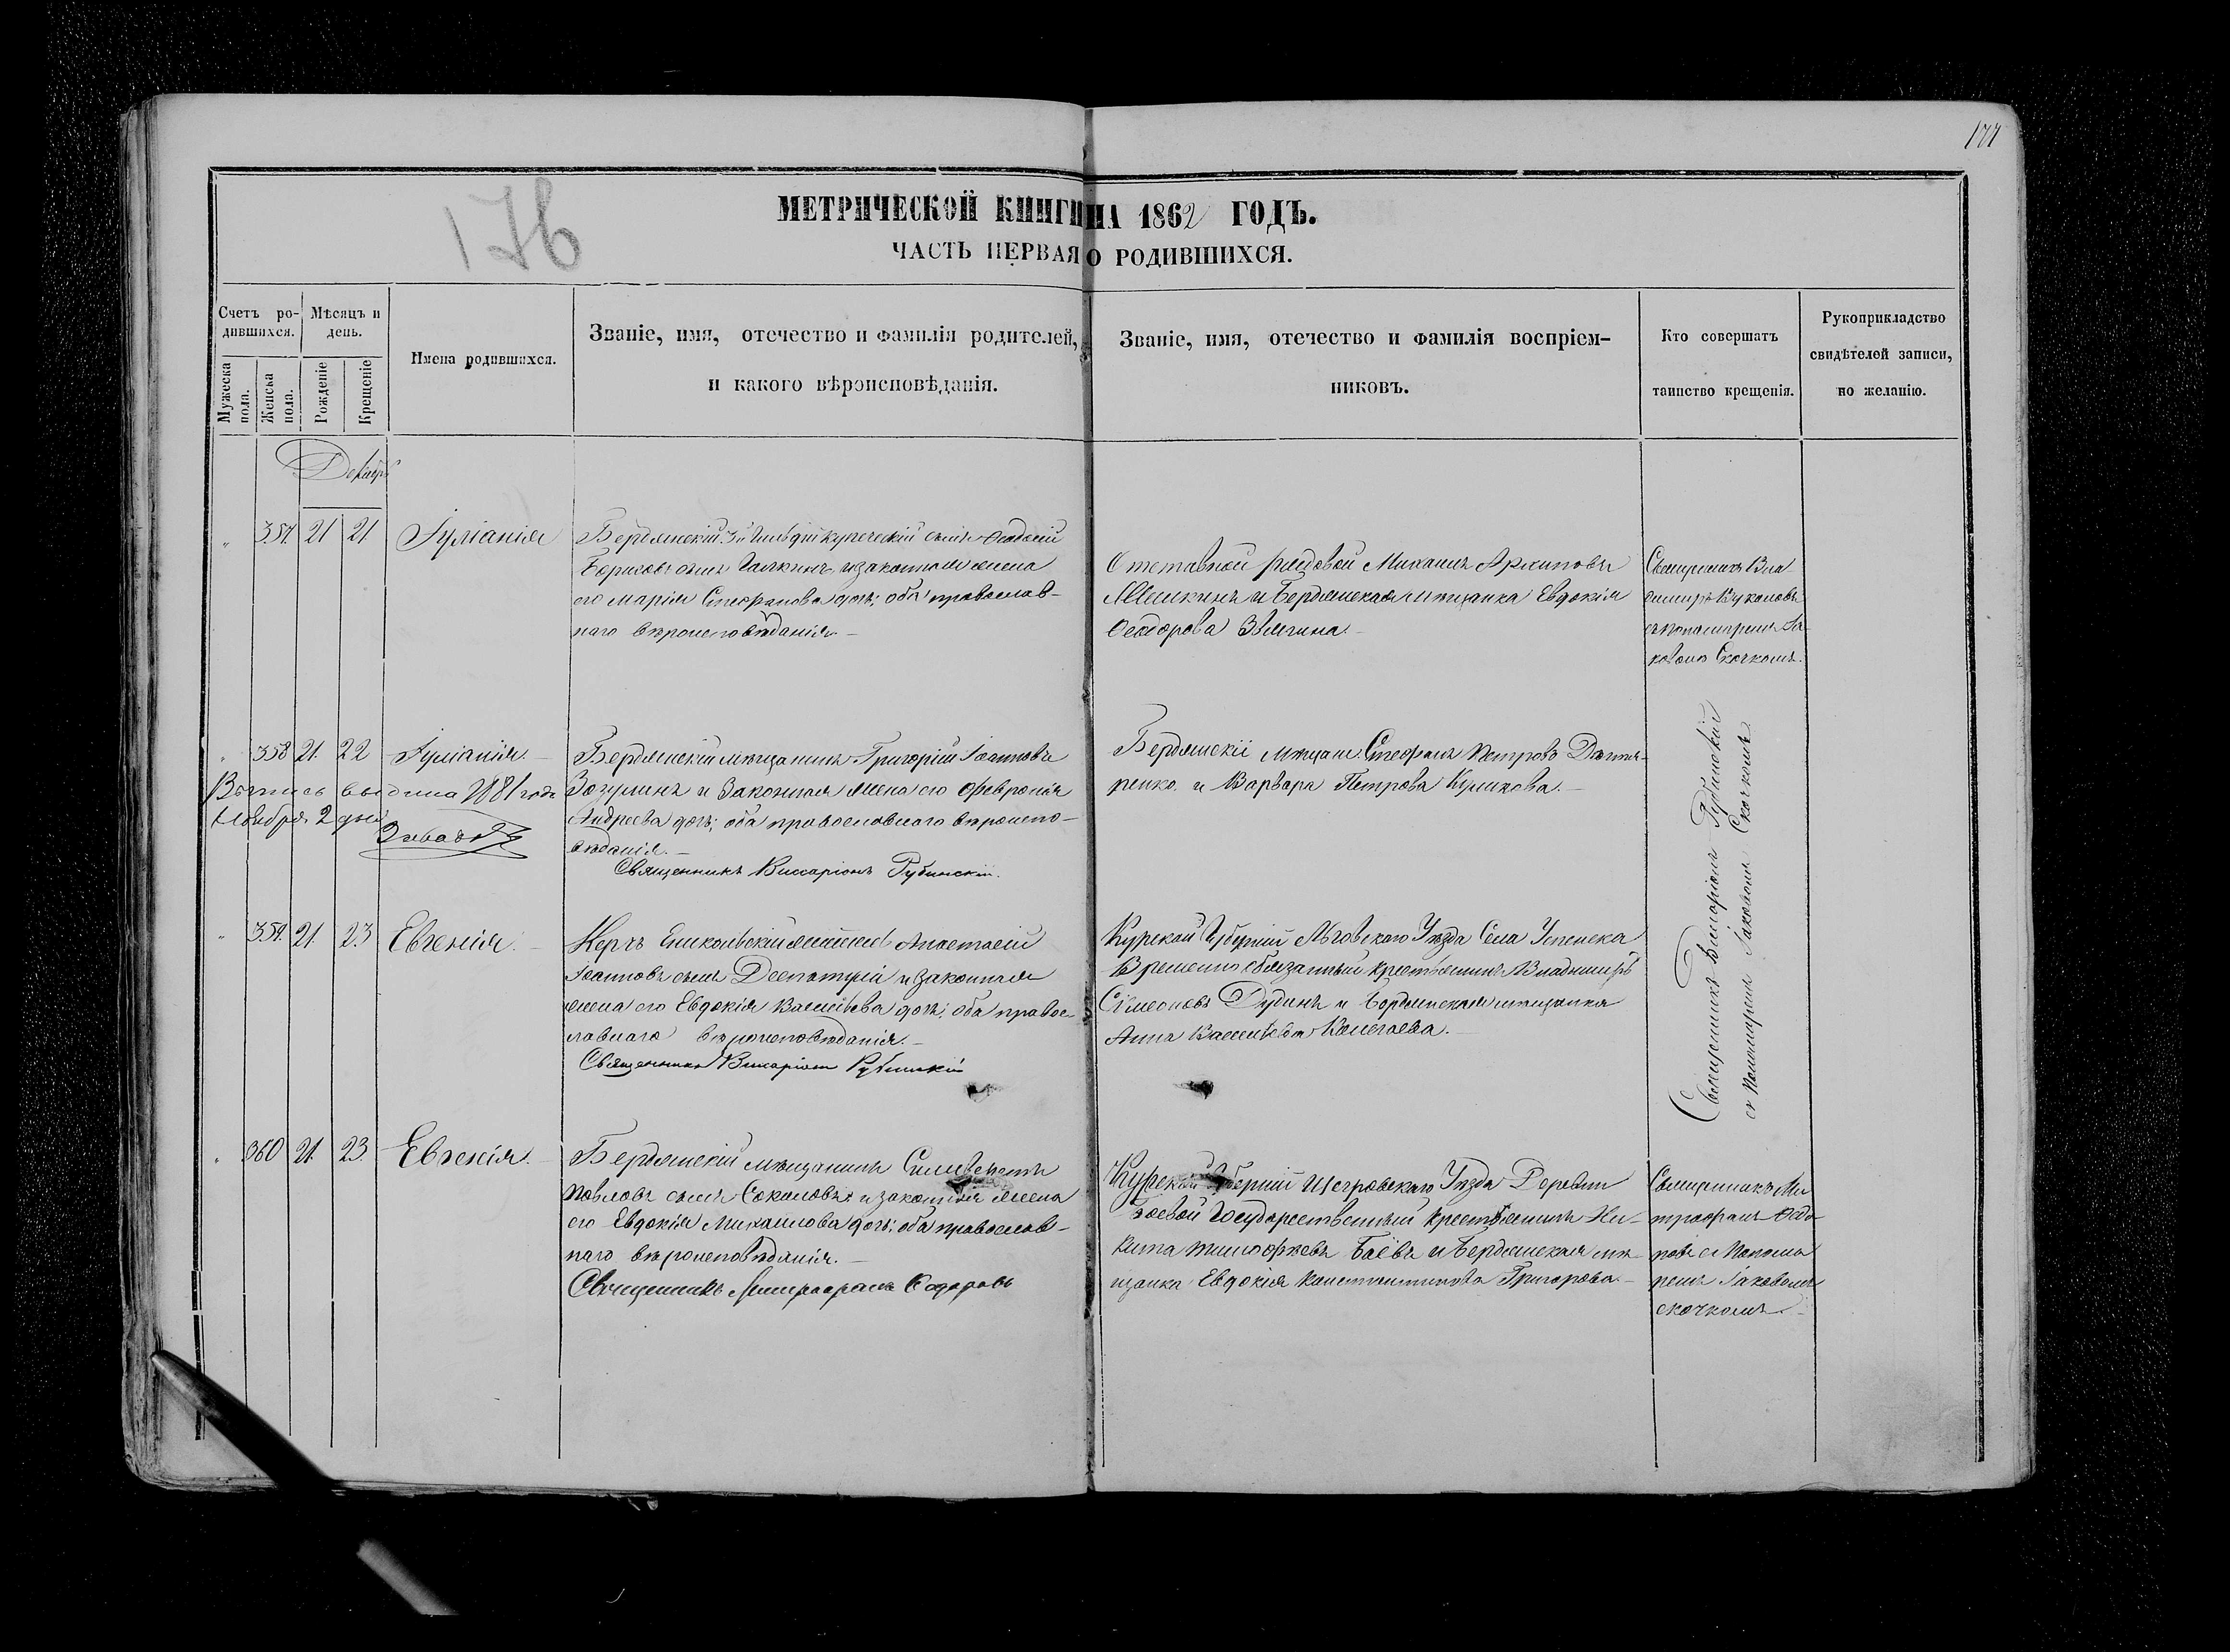 177
176
МЕТРИЧЕСКОЙ КНИГИ НА 1862 ГОДЪ.
ЧАСТЬ ПЕРВАЯ О РОДИВШИХСЯ.
Счетъ ро-
дившихся.
Мужеска пола.
Женска пола.
Мѣсяцъ и
день.
Рожденіе
Крещеніе
Имена родившихся.
Званіе, имя, отечество и фамилія родителей,
и какого вѣроисповѣданія.
Званіе, имя, отечество и фамилія воспріем-
никовъ.
Кто совершатъ
таинство крещенія.
Рукоприкладство
свидѣтелей записи,
по желанію.
Декабрь
" 357. 21 21 Іуліанія
Бердянскій 3й Гильдіи купеческій сынъ
Борисовъ сынъ Галкинъ и законная жена
его Марія Стефанова дочь; оба православ-
наго вѣроисповѣданія.
Отставной рядовой Михаилъ Архиповъ
и Бердянская мѣщанка Евдокія
Ѳеодорова Звягина.
Священникъ Вла
димиръ Вуколовъ
съ пономаремъ Іа-
ковомъ Скочкомъ.
" 358 21. 22 Іуліанія.
Бердянскій мѣщанинъ Григорій Іоанновъ
Зозулинъ и законная жена его Февронія
Андреева дочь; оба православнаго вѣроиспо-
вѣданія.
Священникъ Виссаріонъ Рубинскій.
Выпись выдана 1881 года
Ноября 2 дня
Бердянскіе мѣщане Стефанъ Петровъ Дехтя-
ренко и Варвара Петрова Куликова.
Священникъ Виссаріонъ Рубинскій
съ Пономаремъ Іаковомъ Скочкомъ.
" 359. 21. 23 Евгенія.
Керчь Еникольскій мѣщанинъ Анастасій
Іоанновъ сынъ Деспотули и законная
жена его Евдокія Васильева дочь; оба правос-
лавнаго вѣроисповѣданія.
Священникъ Виссаріонъ Рубинскій
Курской Губерніи Льговскаго Уѣзда Села Успенска
Временно обязанный крестьянинъ Владимиръ
Сѵмеоновъ Дудинъ и Бердянская мѣщанка
Анна Васильева
" 360 21. 23. Евгенія.
Бердянскій мѣщанинъ Сильвестръ
Павловъ сынъ Соколовъ и законная жена
его Евдокія Михаилова дочь; оба православ-
наго вѣроисповѣданія.
Священникъ Митрофанъ Ѳедоровъ
Курской Губерніи Щегровскаго Уѣзда Деревни
Боевой Государственный крестьянинъ Ни-
кита Тимофѣевъ Боёвъ и Бердянская мѣ-
щанка Евдокія Константинова Григорова.
Священникъ Ми
трофанъ Ѳедо
ровъ съ Понома
ремъ Іаковомъ
Скочкомъ.